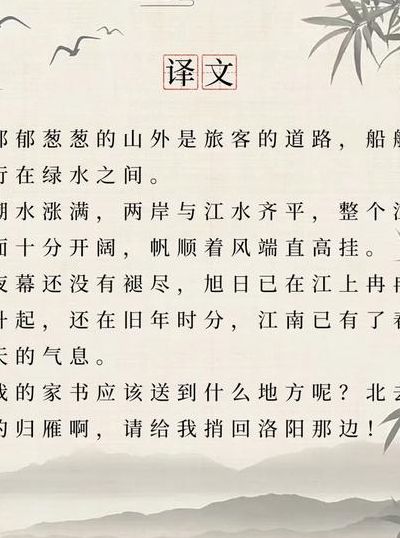 译文
郁葱葱的山外是旅客的道路，船
行在绿水之间。
潮水涨满，两岸与江水齐平，整个
面十分开阔，帆顺着风端直高挂。
夜幕还没有褪尽，旭日已在江上冉
升起，还在旧年时分，江南已有了
天的气息。
我的家书应该送到什么地方呢？北去
的归雁啊，请给我捎回洛阳那边！